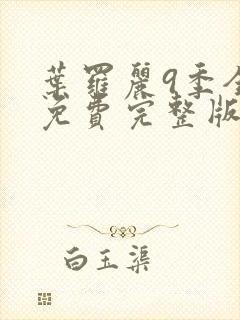 葉羅麗9季全
免費完整版
白玉渠